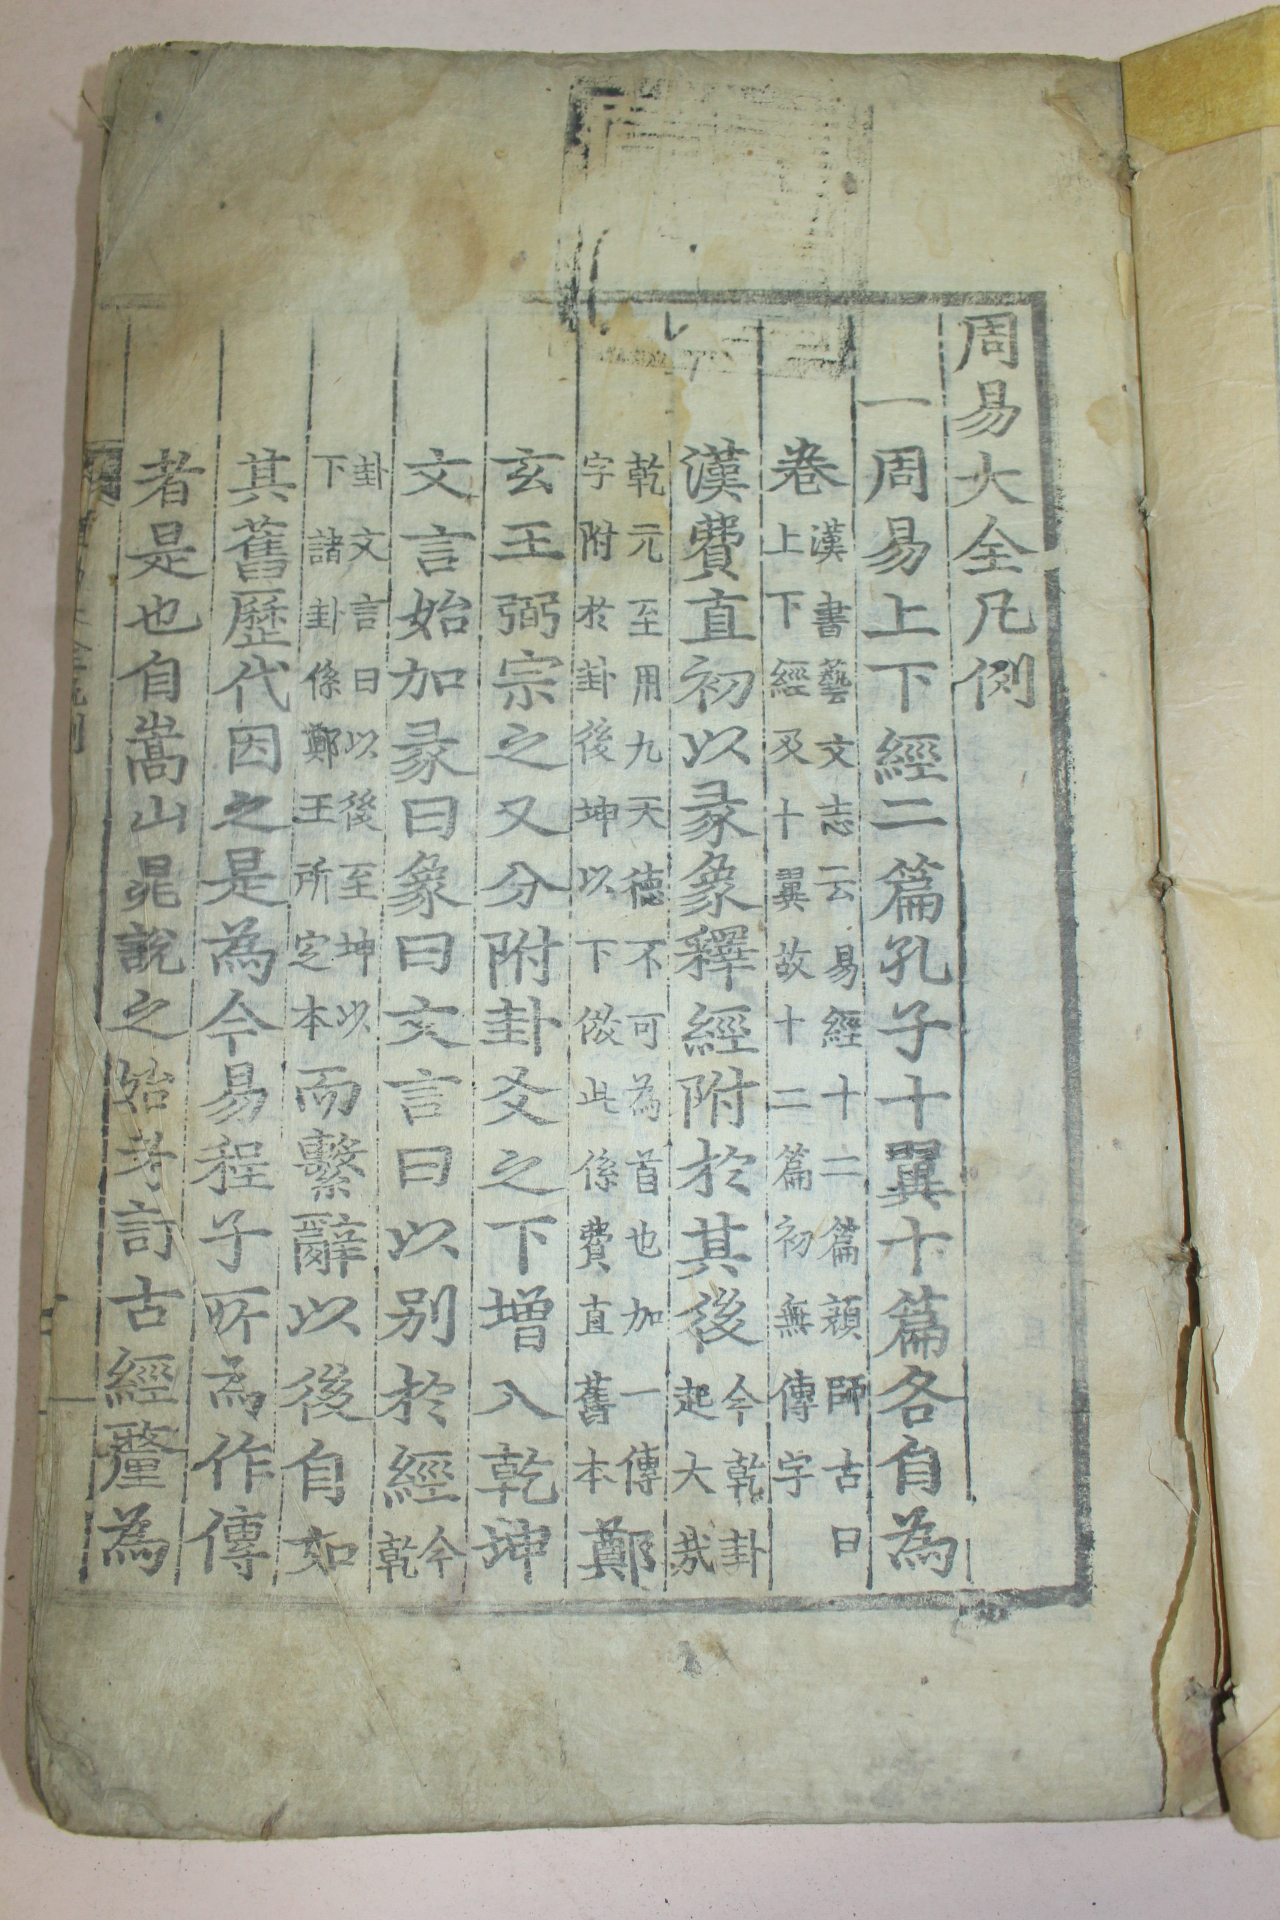 周易大全凡例
一周易上下經二篇孔子十翼十篇各自為
卷漢書藝文志云易經十二篇顔師古曰上下經及十翼故十二篇初無傳字
漢費直初以彖象釋經附於其後今乾卦起大哉
乾元至用九天德不可為首也加一傳字附於卦後坤以下倣此係費直舊本鄭
玄王弼宗之又分附卦爻之下增入乾坤
文言始加彖曰象曰文言曰以别於經今乾
卦文言曰以後至坤以下諸卦係鄭王所定本而繫辭以後自如
其舊歷代因之是為今易程子所為作傳
者是也自嵩山晁說之始考訂古經釐為